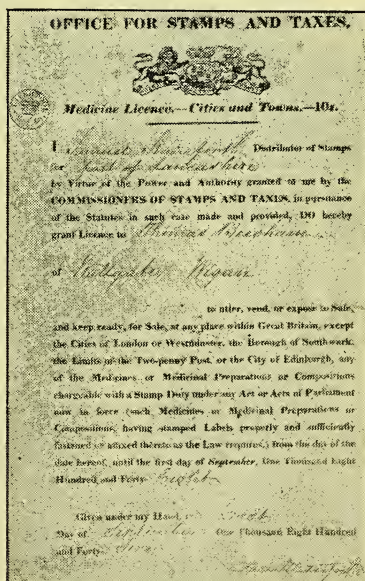 OFFICE FOR STAMPS AND TAXES.
Medicine Licence.—Cities and Towns.—10s.
I Samuel Distributor of Stamps
for Part of Lancashire
by Virtue of the Power and Authority granted to me by the
COMMISSIONERS OF STAMPS AND TAXES, in pursuance
of the Statutes in such case made and provided, DO hereby
grant Licence to Thomas Beecham
of Wallgate Wigan
to utter, vend, or expose to Sale,
and keep ready, for Sale, at any place within Great Britain, except
the Cities of London or Westminster, the Borough of Southwark,
the Limits of the Two-penny Post, or the City of Edinburgh, any
of the Medicines or Medicinal Preparations or Compositions
chargeable with a Stamp Duty under any Act or Acts of Parliament
now in force (such Medicines or Medicinal Preparations or
Compositions, having stamped Labels properly and sufficiently
fastened or affixed thereto as the Law requires,) from the day of the
date hereof, until the first day of September, One Thousand Eight
Hundred and Forty Eight
Given under my Hand
Day of September One Thousand Eight Hundred
and Forty